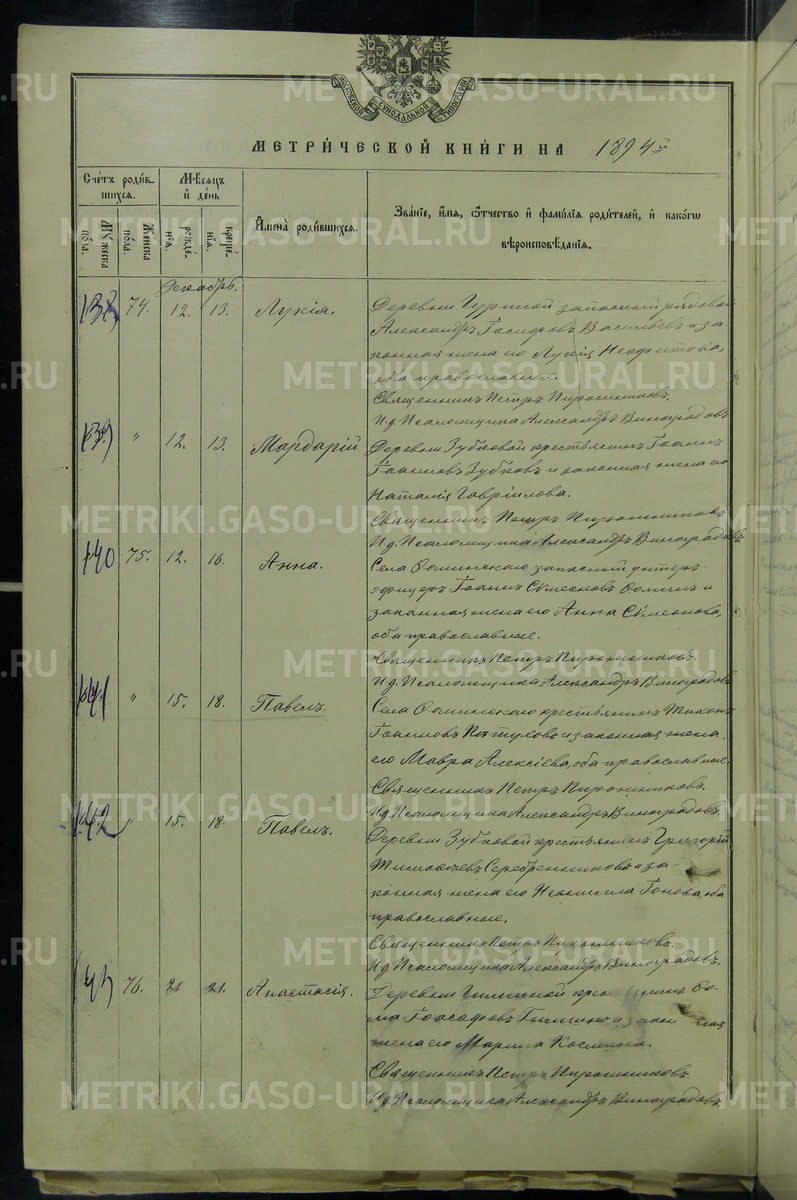 МОСКОВСКОЙ СѴНОДАЛЬНОЙ ТИПОГРАФІИ
МЕТРИ́ЧЕСКОЙ КНИ́ГИ НА 1894й
Сче́тъ роди́в-
шихся.
Мꙋ́жеска по́ла.
Же́нска по́ла.
Мѣ́сяцъ
и҆ де́нь
рожде́-
нїя.
креще́-
нїя.
И҆мена̀ роди́вшихся.
Зва́нїе, и҆́мя, ѻ҆́тчество и҆ фами́лїя роди́телей, и҆ како́гѡ
вѣроисповѣ́данїя.
Декабрь.
138 74. 12. 13. Лукія. Деревни Гуриной запасной рядовой
Александръ Іосифовъ Васильевъ и за-
конная жена его Лукія Неофитова,
оба православные.
Священникъ Петръ Пирожниковъ.
И.д. Псаломщика Александръ Виноградовъ
139 " 12. 13. Мардарій Деревни Зубковой крестьянинъ Іоаннъ
Іоанновъ Зубковъ и законная жена его
Наталія Гавріилова.
Священникъ Петръ Пирожниковъ
И.д. Псаломщика Александръ Виноградовъ
140 75. 12. 16. Анна. Села Ѳоминскаго запасный унтеръ-
офицеръ Іоаннъ Сѵмеоновъ Ѳоминъ и
законная жена его Анна Сѵмеонова,
оба православные.
Священникъ Петръ Пирожниковъ.
И.д. Псаломщика Александръ Виноградовъ
141 " 15. 18. Павелъ. Села Ѳоминскаго крестьянинъ Тихонъ
Іоанновъ Пѣтуховъ и законная жена
его Мавра Алексіева, оба православные.
Священникъ Петръ Пирожниковъ.
И.д. Псаломщика Александръ Виноградовъ.
142 " 15. 18. Павелъ. Деревни Зубковой крестьянинъ Григорій
Тимофеевъ Серебренниковъ и за-
конная жена его Неонилла оба
православные.
Священникъ Петръ Пирожниковъ.
И.д. Псаломщика Александръ Виноградовъ.
76. 21 21. Анастасія. Деревни Ѳо-
ма Іоасафовъ и
жена его Марина Космина.
Священникъ Петръ Пирожниковъ
И.д. Псаломщика Александръ Виноградовъ
METRIKI.GASO-URAL.RU